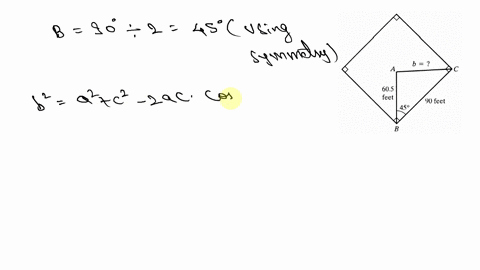 B = 90° ÷ 2 = 45° (using
symmetry)
b² = a² + c² - 2ac. Cos
A
b = ?
C
60.5
feet
45°
90 feet
B